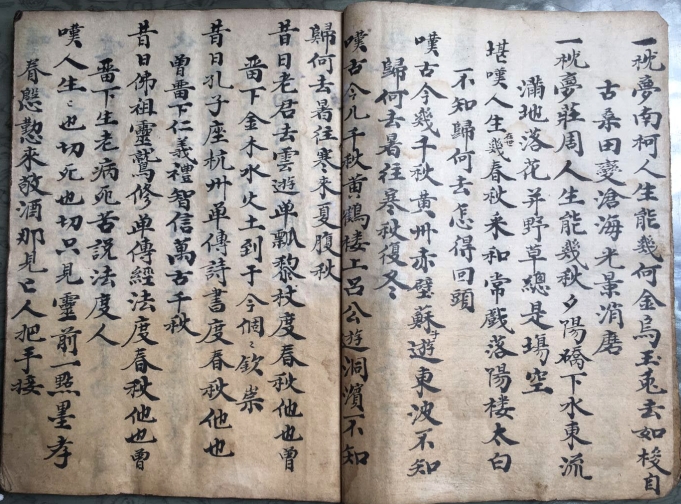 一枕夢南柯人生能幾何金烏玉兔去如梭自
古桑田變滄海光景消磨
一枕夢莊周人生能幾秋夕陽橋下水東流
滿地落花并野草總是塲空
堪嘆人生幾春秋采和常戲落陽樓太白
一不知歸何去怎得回頭
嘆古今幾千秋黃州赤壁蘇遊東波不知
歸何去暑往寒秋復冬
嘆古今几千秋黃鶴楼上呂公遊洞濱不知
歸何去暑往寒来夏腹秋
昔日老君去雲遊单瓢黎杖度春秋他也曾
畱下金木水火土到于今個〻欽崇
昔日孔子座杭州单傳詩書度春秋他也
曾畱下仁義禮智信萬古千秋
昔日佛祖靈鷲修单傳經法度春秋他也曾
畱下生老病死苦説法度人
嘆人生〻也切死也切只見靈前一㸃墨孝
眷慇懃來敬酒那見亡人把手接